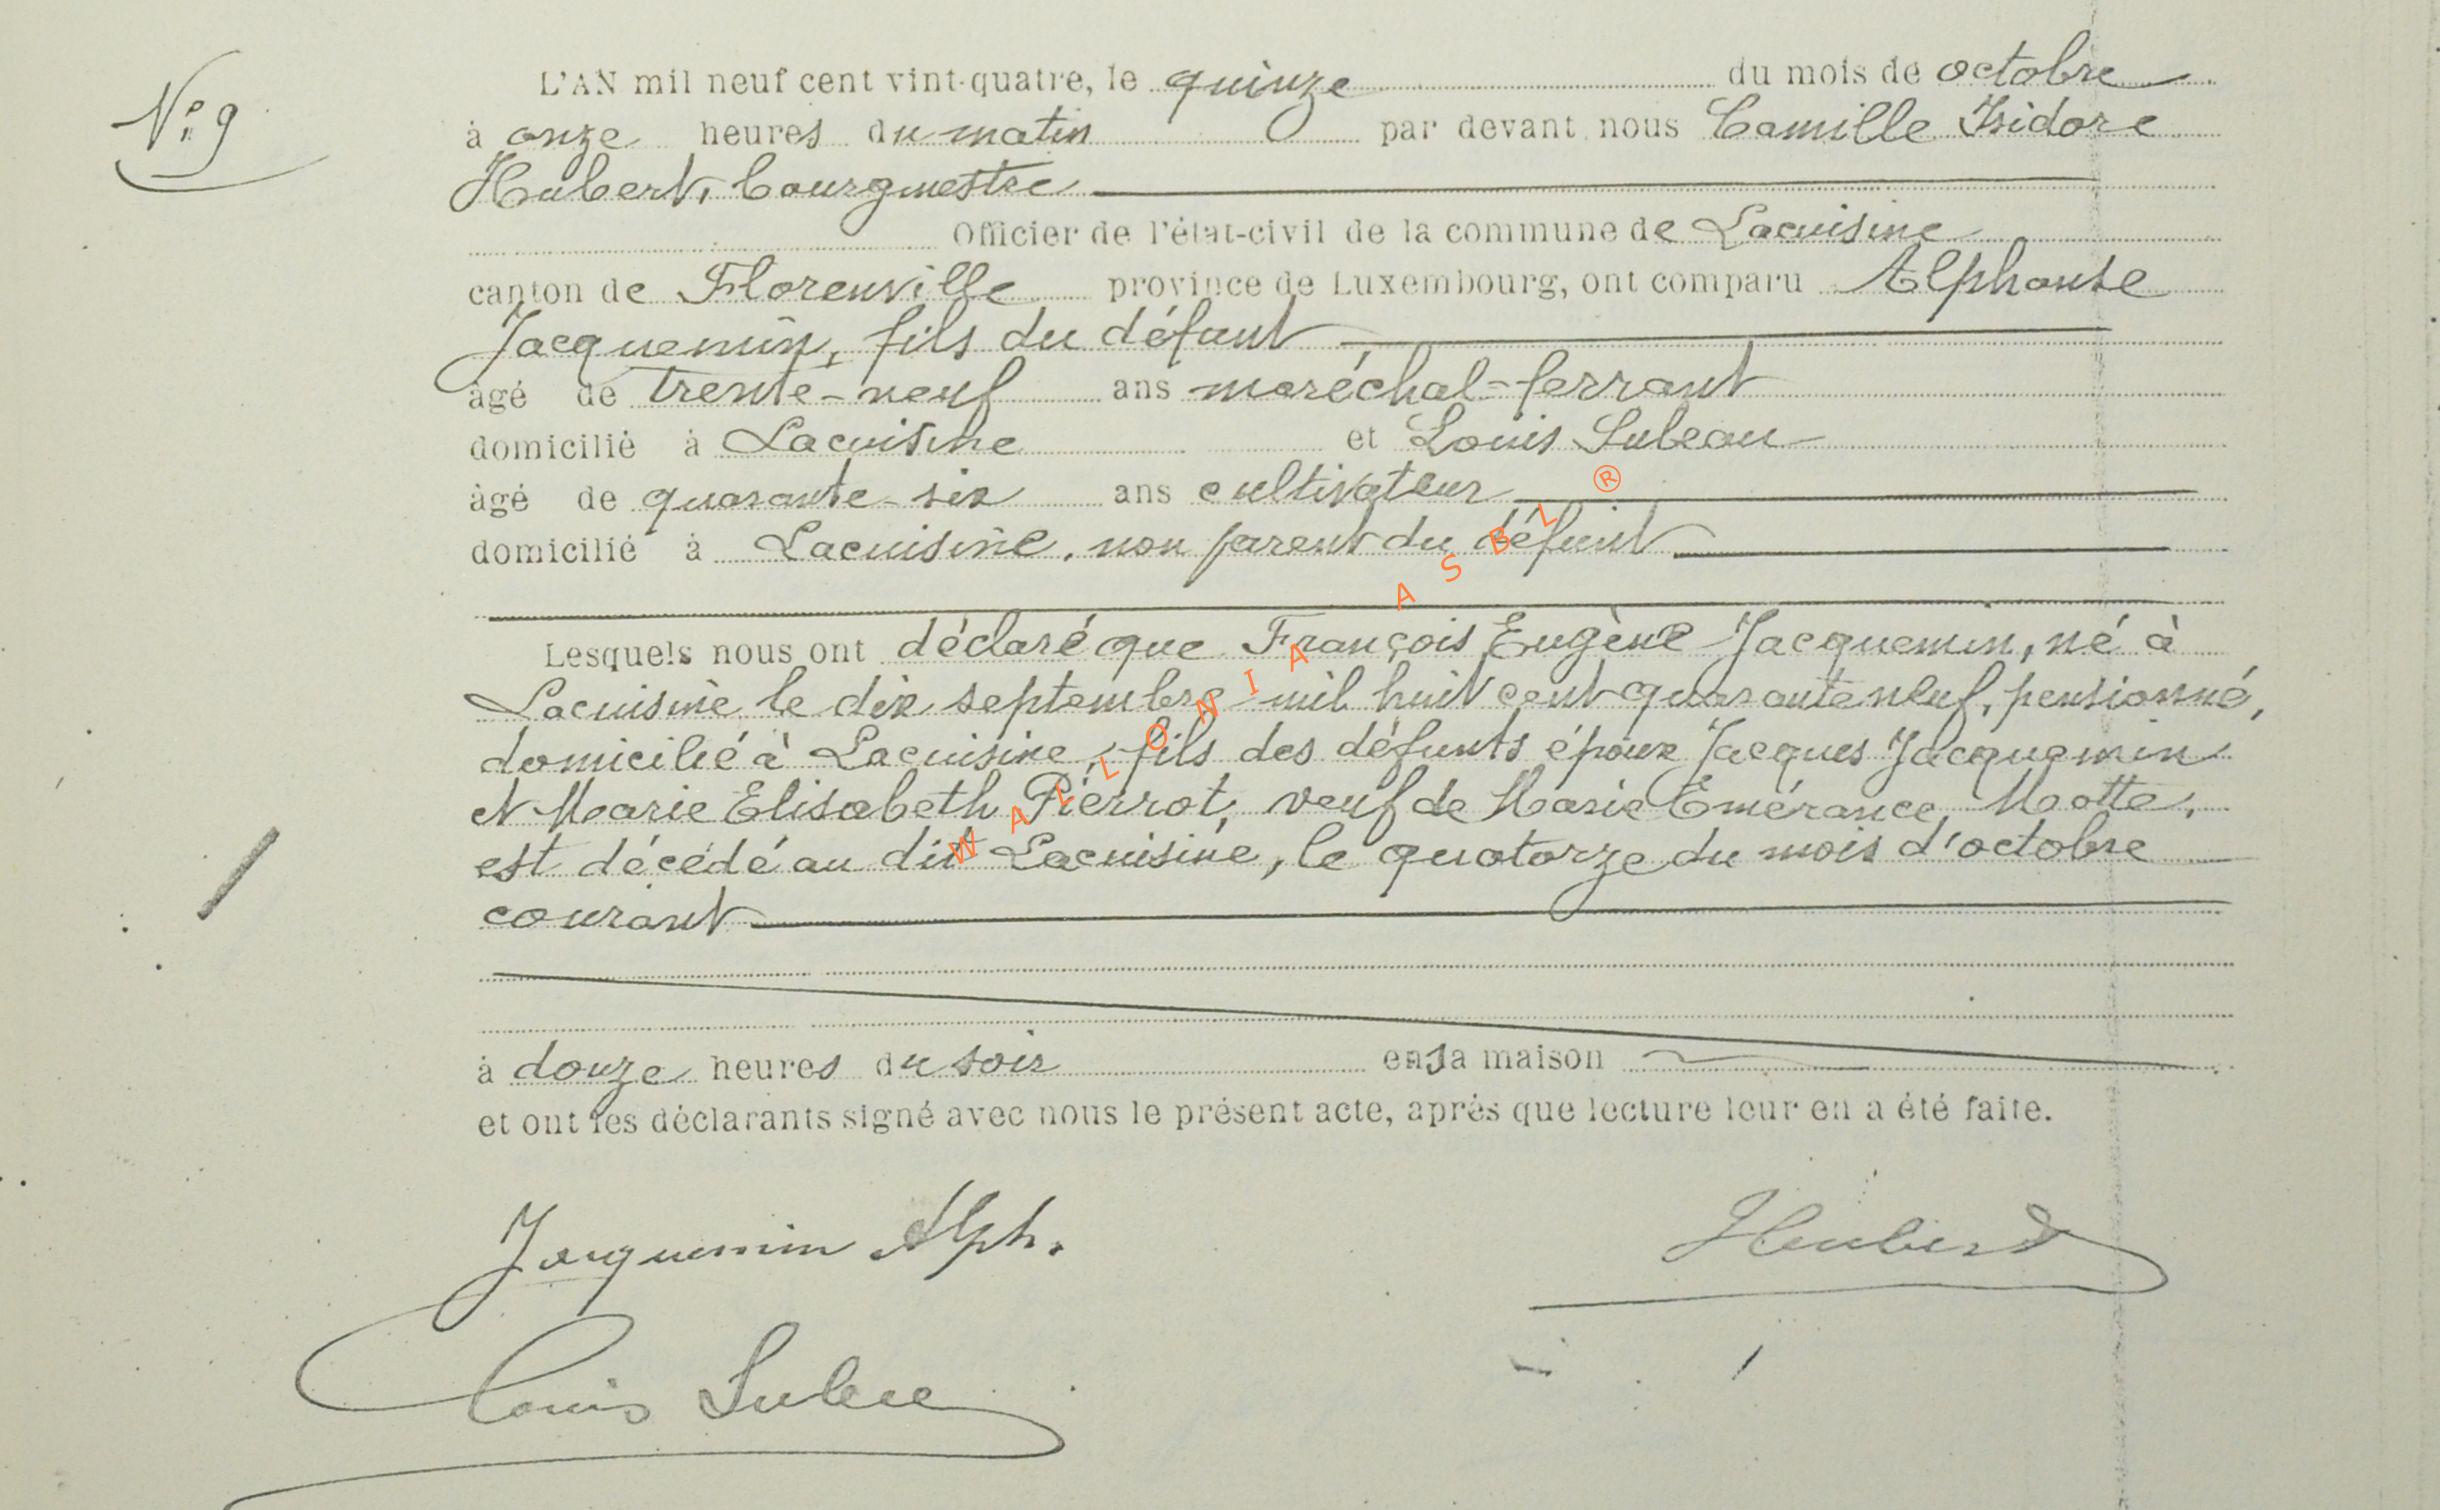 N° 9
L'AN mil neuf cent vint-quatre, le quinze du mois de octobre
à onze heures du matin par devant nous Camille Isidore
Hubert, bourgmestre
Officier de l'état-civil de la commune de Lacuisine
canton de Florenville province de Luxembourg, ont comparu Alphonse
Jacquemin, fils du défunt
âgé de trente-neuf ans maréchal-ferrant
domicilié à Lacuisine et Louis Suleau
âgé de quarante-six ans cultivateur
domicilié à Lacuisine, non parent du défunt
Lesquels nous ont déclaré que François Eugène Jacquemin, né à
Lacuisine le dix septembre mil huit cent quarante neuf, pensionné,
domicilié à Lacuisine, fils des défunts époux Jacques Jacquemin
et Marie Elisabeth Pierrot, veuf de Marie Emérance Motte,
est décédé au dit Lacuisine, le quatorze du mois d'octobre
courant
à douze heures du soir en sa maison
et ont les déclarants signé avec nous le présent acte, après que lecture leur en a été faite.
Jacquemin Alph.
Hubert
Louis
WALLONIA ASBL ®